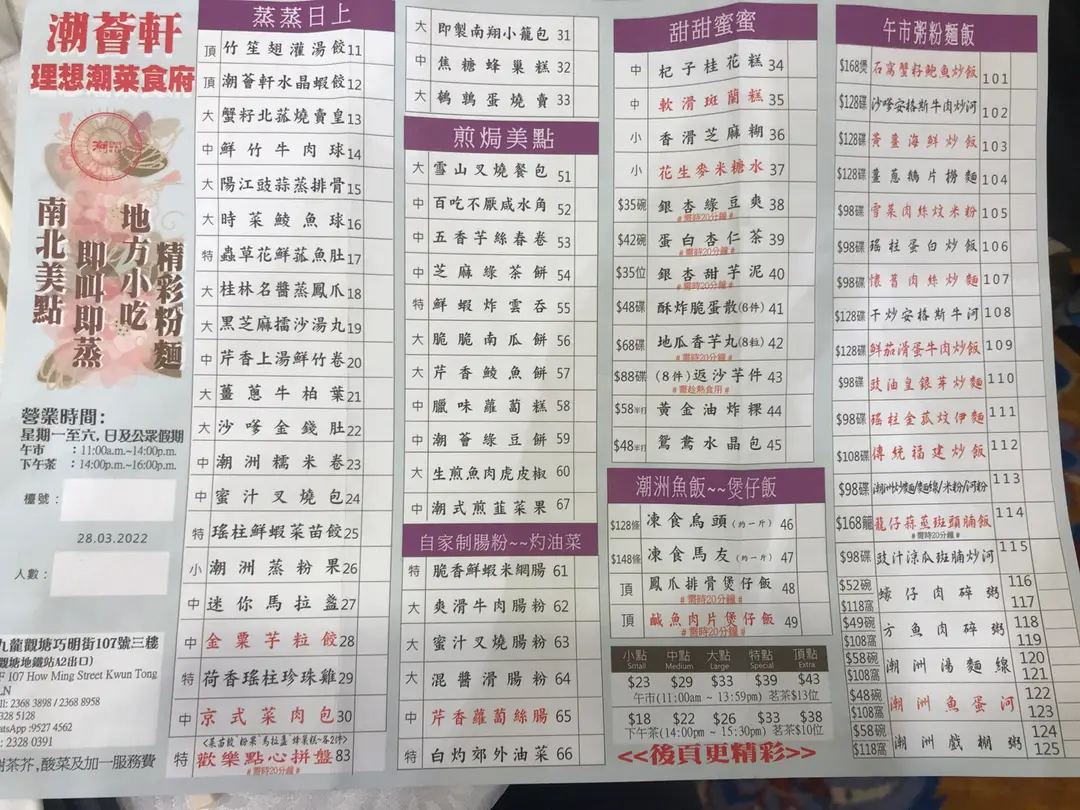 潮薈軒
理想潮菜食府
潮
精彩粉麵
地方小吃
即叫即蒸
南北美點
營業時間:
星期一至六, 日及公眾假期
午市 : 11:00a.m.~14:00p.m.
下午茶 : 14:00p.m.~16:00p.m.
檯號:
28.03.2022
人數:
九龍觀塘巧明街107號三樓
觀塘地鐵站A2出口)
F 107 How Ming Street Kwun Tong
LN
: 2368 3898 / 2368 8958
328 5128
atsApp :9527 4562
: 2328 0391
謝茶芥, 酸菜及加一服務費
蒸蒸日上
頂 竹笙翅灌湯餃 11
頂 潮薈軒水晶蝦餃 12
大 蟹籽北菇燒賣皇 13
中 鮮竹牛肉球 14
大 陽江豉蒜蒸排骨 15
大 時菜鯪魚球 16
特 蟲草花鮮菰魚肚 17
大 桂林名醬蒸鳳爪 18
大 黑芝麻擂沙湯丸 19
中 芹香上湯鮮竹卷 20
大 薑蔥牛柏葉 21
大 沙嗲金錢肚 22
中 潮洲糯米卷 23
中 蜜汁叉燒包 24
特 瑤柱鮮蝦菜苗餃 25
小 潮洲蒸粉果 26
中 迷你馬拉盞 27
中 金栗芋粒餃 28
特 荷香瑤柱珍珠雞 29
中 京式菜肉包 30
<菜苗餃 粉果 馬拉盞 蜂巢糕~各2件>
特 歡樂點心拼盤 83
# 需時20分鐘 #
大 即製南翔小籠包 31
中 焦糖蜂巢糕 32
大 鵪鶉蛋燒賣 33
煎焗美點
大 雪山叉燒餐包 51
中 百吃不厭咸水角 52
中 五香芋絲春卷 53
中 芝麻綠茶餅 54
特 鮮蝦炸雲吞 55
大 脆脆南瓜餅 56
大 芹香鯪魚餅 57
中 臘味蘿蔔糕 58
中 潮薈綠豆餅 59
大 生煎魚肉虎皮椒 60
中 潮式煎韮菜果 67
自家制腸粉~~灼油菜
特 脆香鮮蝦米網腸 61
大 爽滑牛肉腸粉 62
大 蜜汁叉燒腸粉 63
大 混醬滑腸粉 64
中 芹香蘿蔔絲腸 65
中 白灼郊外油菜 66
甜甜蜜蜜
中 杞子桂花糕 34
中 軟滑斑蘭糕 35
小 香滑芝麻糊 36
小 花生麥米糖水 37
$35碗 銀杏綠豆爽 38
# 需時20分鐘 #
$42碗 蛋白杏仁茶 39
# 需時20分鐘 #
$35位 銀杏甜芋泥 40
# 需時20分鐘 #
$48碟 酥炸脆蛋散(6件) 41
$68碟 地瓜香芋丸(8粒) 42
# 需時20分鐘 #
$88碟 (8件)返沙芋件 43
# 需趁熱食用 #
$58半打 黃金油炸粿 44
$48半打 鴛鴦水晶包 45
潮洲魚飯~~煲仔飯
$128條 凍食烏頭(約一斤) 46
$148條 凍食馬友(約一斤) 47
頂 鳳爪排骨煲仔飯 48
# 需時20分鐘 #
頂 鹹魚肉片煲仔飯 49
# 需時20分鐘 #
小點 中點 大點 特點 頂點
Small Medium Large Special Extra
$23 $29 $33 $39 $43
午市(11:00am ~ 13:59pm) 茗茶$13位
$18 $22 $26 $33 $38
下午茶(14:00pm ~ 15:30pm) 茗茶$10位
<<後頁更精彩>>
午市粥粉麵飯
$168煲 石窩蟹籽鮑魚炒飯 101
$128碟 沙嗲安格斯牛肉炒河 102
$128碟 黃薑海鮮炒飯 103
$128碟 薑蔥鵝片撈麵 104
$98碟 雪菜肉絲炆米粉 105
$98碟 瑤柱蛋白炒飯 106
$98碟 懷舊肉絲炒麵 107
$128碟 干炒安格斯牛河 108
$128碟 鮮茄滑蛋牛肉炒飯 109
$98碟 豉油皇銀芽炒麵 110
$98碟 瑤柱金菰炆伊麵 111
$108碟 傳統福建炒飯 112
$98碟 潮洲炒麵/麵線/米粉/河粉 113
$168籠 籠仔蒜蒸斑腩飯 114
# 需時20分鐘 #
$98碟 豉汁涼瓜斑腩炒河 115
$52碗 $118窩 蠔仔肉碎粥 116 117
$49碗 $108窩 方魚肉碎粥 118 119
$58碗 $108窩 潮洲湯麵線 120 121
$48碗 $108窩 潮洲魚蛋河 122 123
$58碗 $118窩 潮洲戲棚粥 124 125